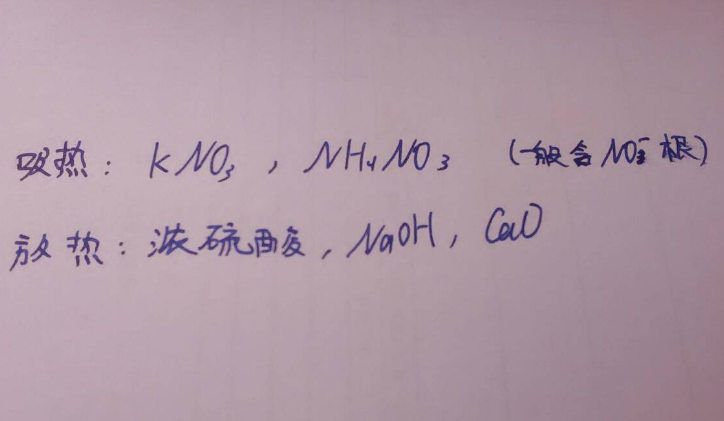 吸热：KNO₃，NH₄NO₃ （一般含NO₃⁻根）
放热：浓硫酸，NaOH，CaO